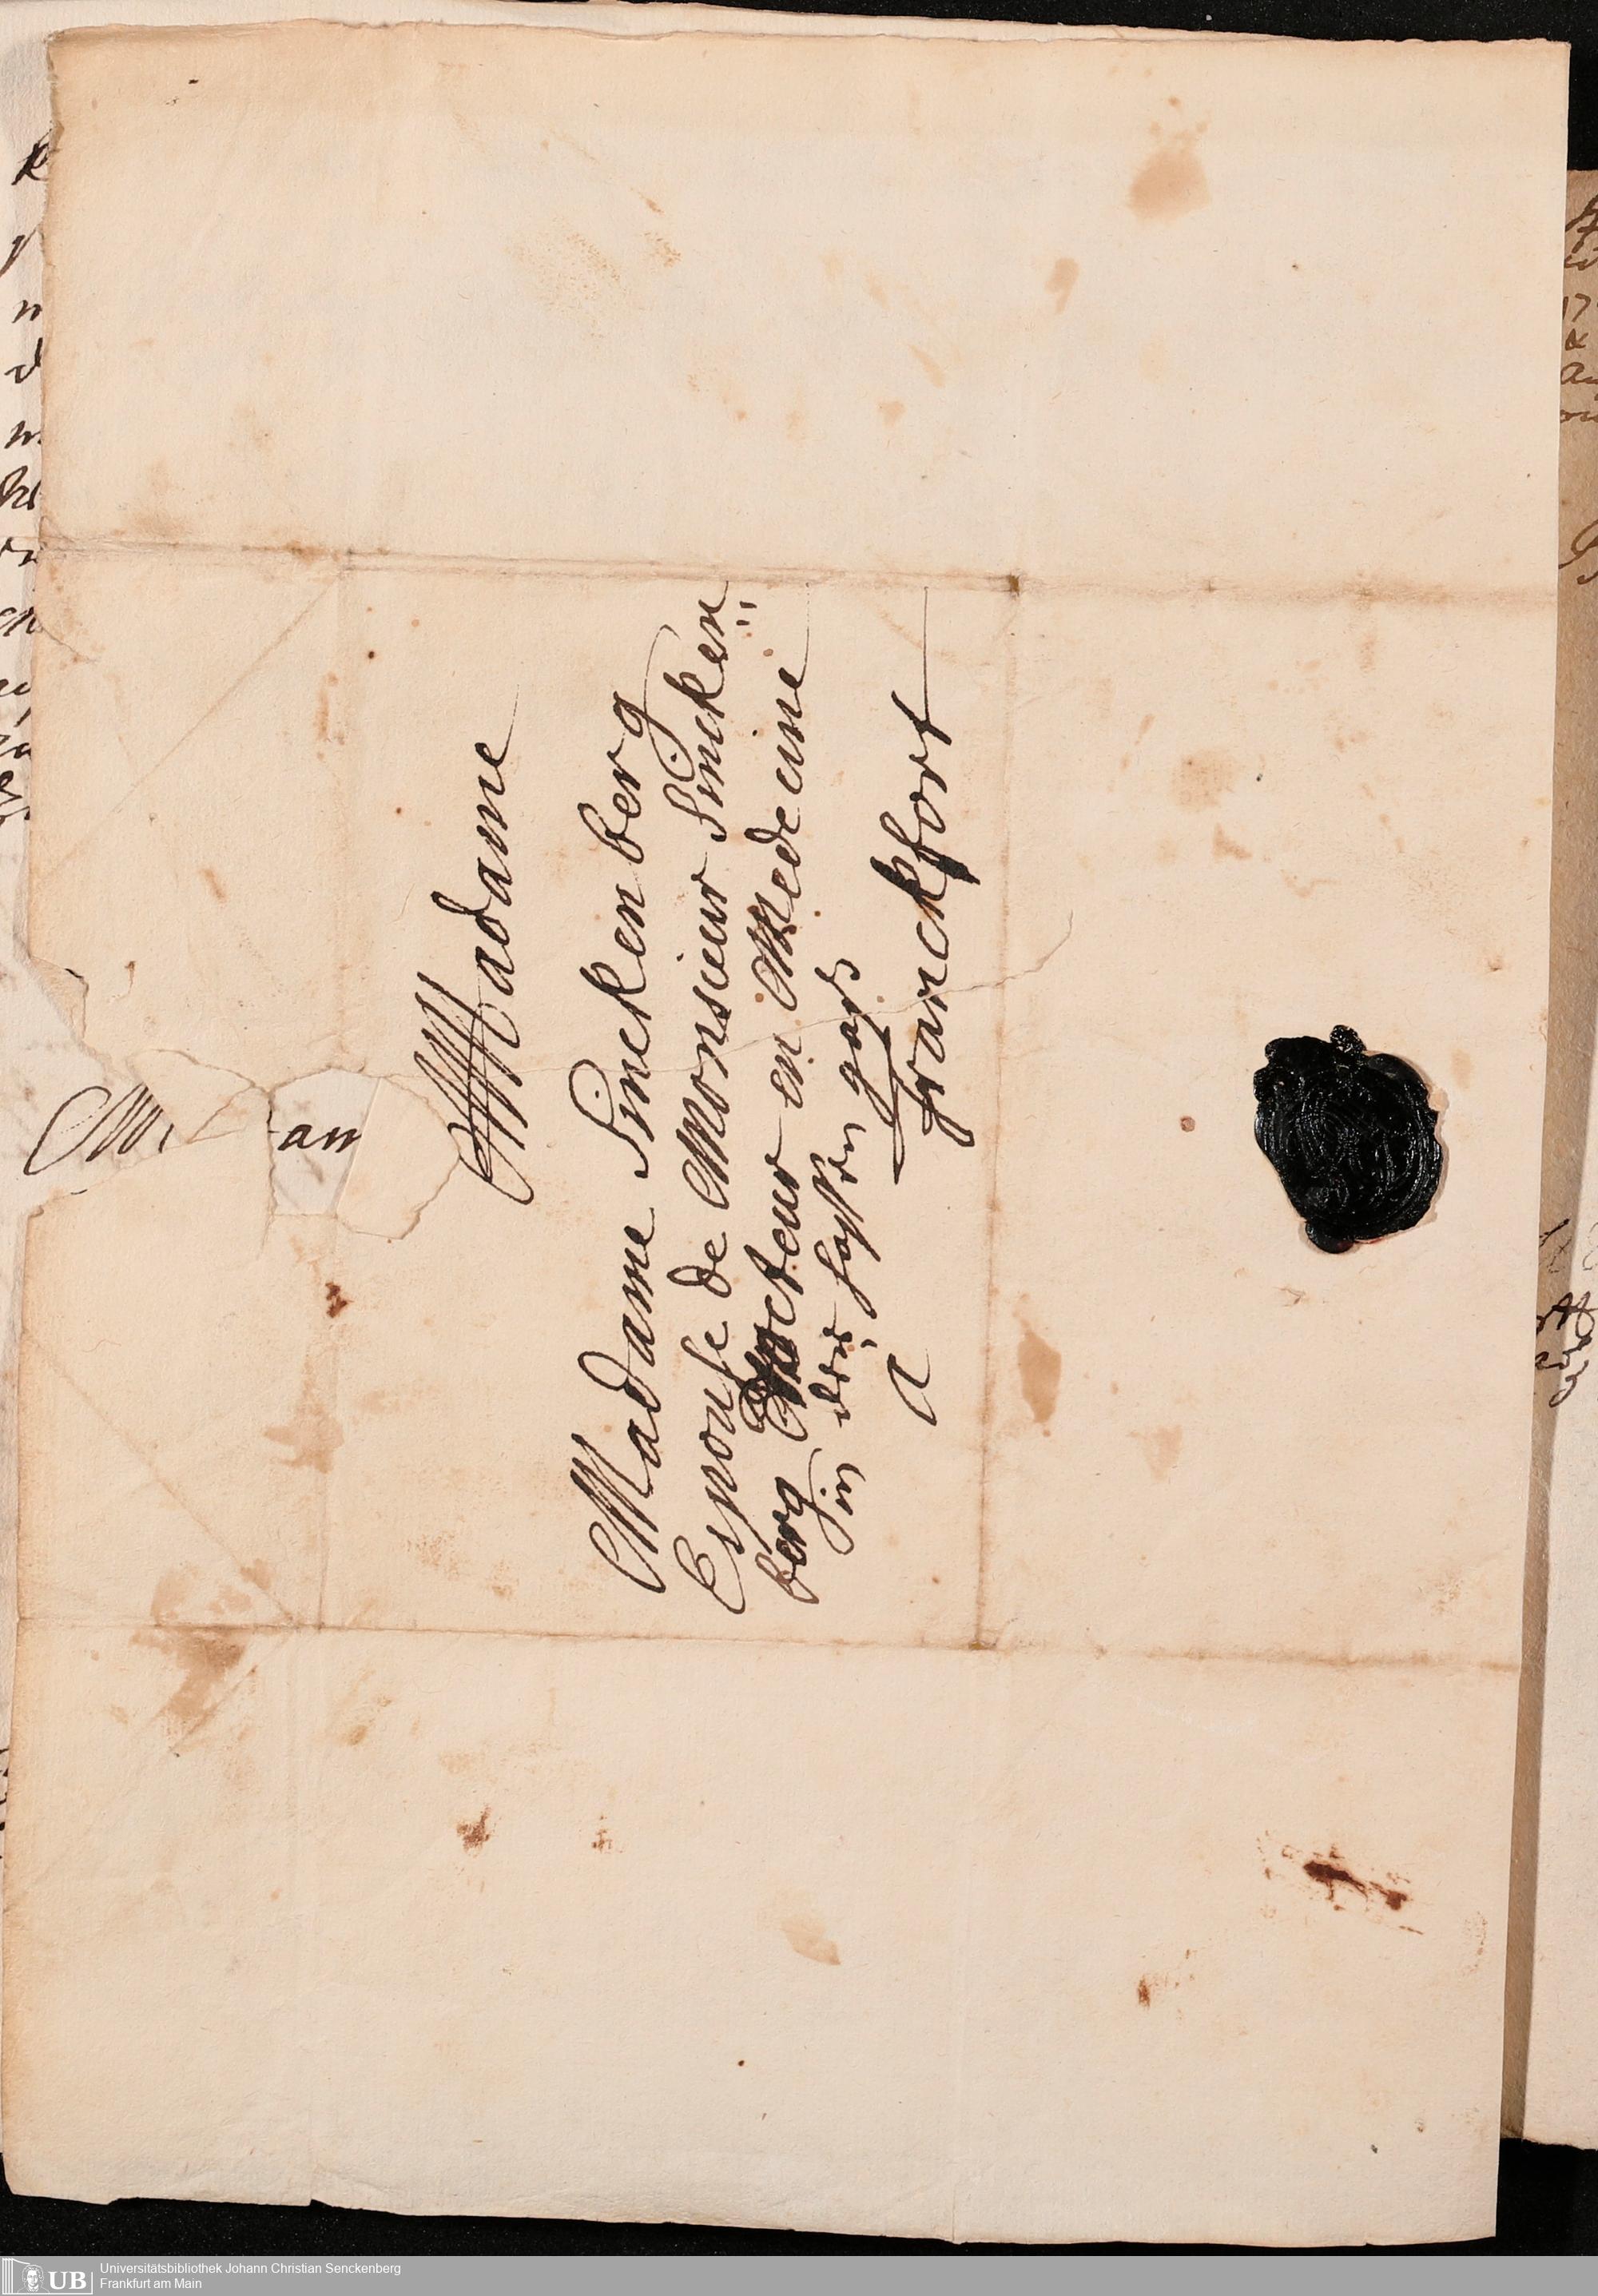 Madame
Madame Sinckenberg
Espouse de Monsieur Sincken:
berg Docteur en Medecine
in der Hassen gass
a franckfort
an
Universitätsbibliothek Johann Christian Senckenberg
Frankfurt am Main
UB